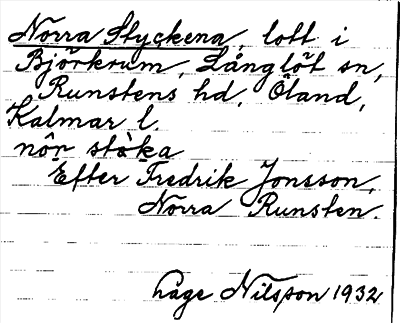 Norra Styckena, lott i
Björkrum, Långlöt sn,
Runstens hd, Öland,
Kalmar l.
nôr stàka
Efter Fredrik Jonsson,
Norra Runsten.
Nilsson 1932